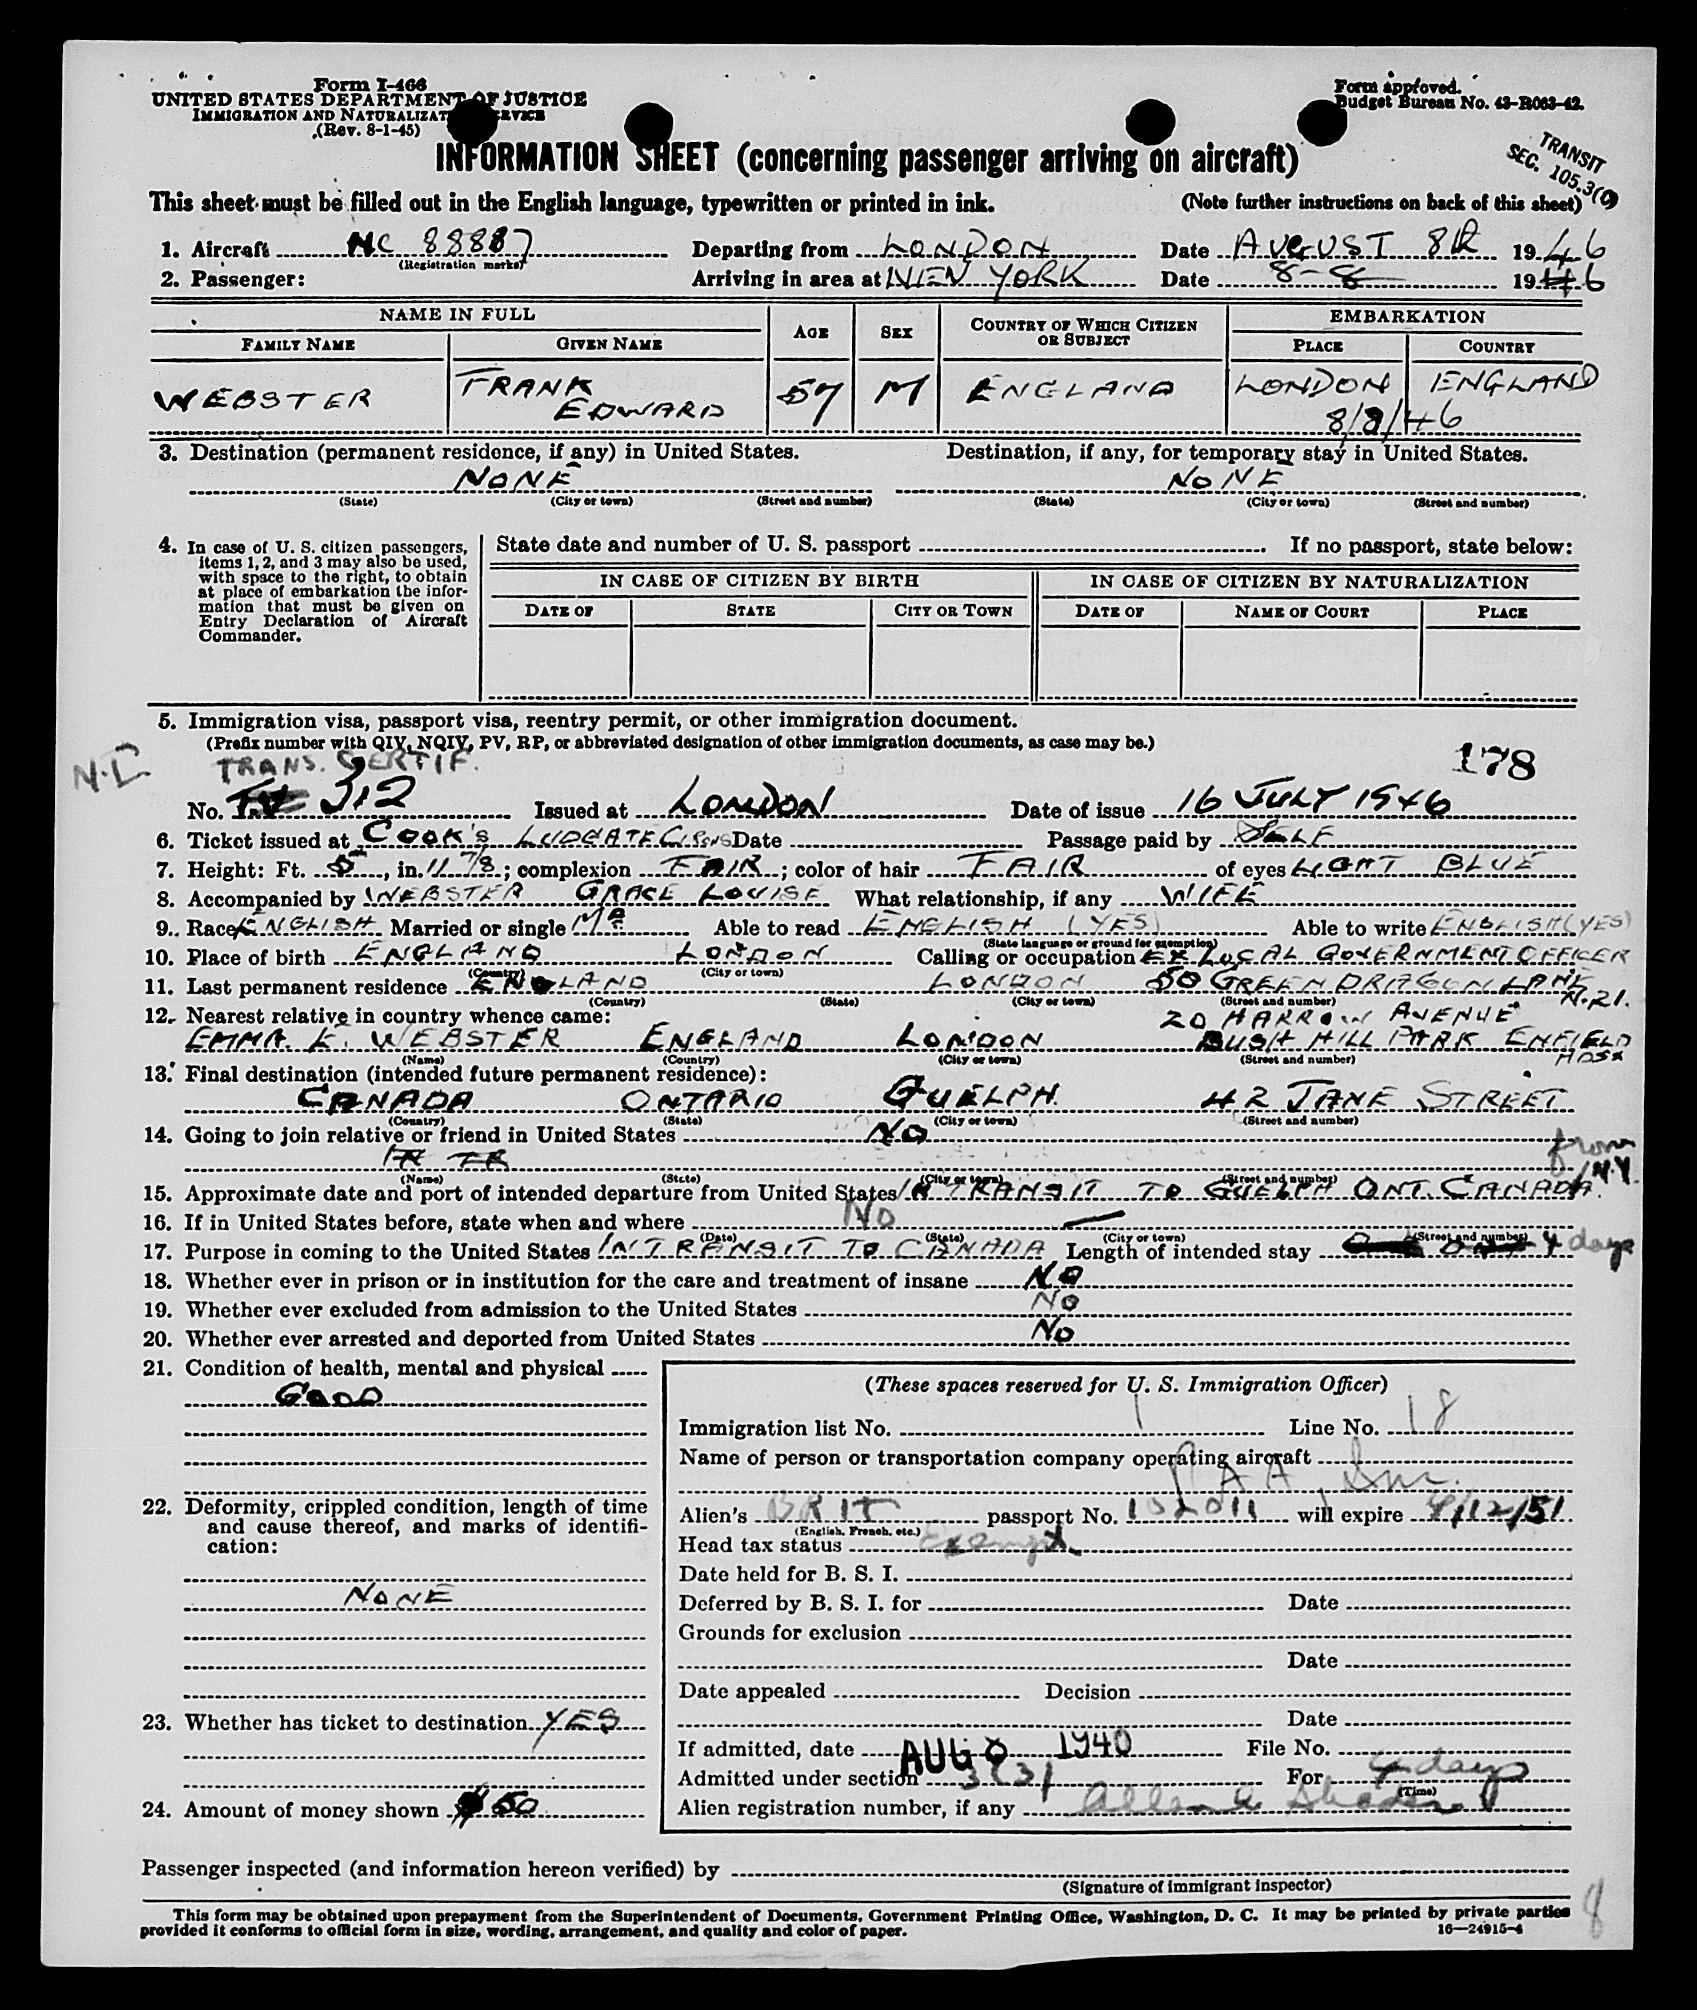 Form I-466
UNITED STATES DEPARTMENT OF JUSTICE
IMMIGRATION AND NATURALIZATION SERVICE
(Rev. 8-1-45)
Form approved.
Budget Bureau No. 43-R063-42.
TRANSIT
SEC. 105.3(
INFORMATION SHEET (concerning passenger arriving on aircraft)
This sheet must be filled out in the English language, typewritten or printed in ink. (Note further instructions on back of this sheet)
1. Aircraft NC 88887 Departing from LONDON Date AUGUST 8th 1946
(Registration marks)
2. Passenger: Arriving in area at NEW YORK Date 8-8 1946
NAME IN FULL AGE SEX COUNTRY OF WHICH CITIZEN OR SUBJECT EMBARKATION
FAMILY NAME GIVEN NAME PLACE COUNTRY
WEBSTER FRANK EDWARD 57 M ENGLAND LONDON ENGLAND
8/8/46
3. Destination (permanent residence, if any) in United States. Destination, if any, for temporary stay in United States.
NONE NONE
(State) (City or town) (Street and number) (State) (City or town) (Street and number)
4. In case of U. S. citizen passengers,
items 1, 2, and 3 may also be used,
with space to the right, to obtain
at place of embarkation the infor-
mation that must be given on
Entry Declaration of Aircraft
Commander.
State date and number of U. S. passport If no passport, state below:
IN CASE OF CITIZEN BY BIRTH IN CASE OF CITIZEN BY NATURALIZATION
DATE OF STATE CITY OR TOWN DATE OF NAME OF COURT PLACE
5. Immigration visa, passport visa, reentry permit, or other immigration document.
(Prefix number with QIV, NQIV, PV, RP, or abbreviated designation of other immigration documents, as case may be.)
TRANS. CERTIF. 178
No. 312 Issued at LONDON Date of issue 16 JULY 1946
6. Ticket issued at COOK'S LUDGATE Date Passage paid by SELF
7. Height: Ft. 5, in. 11 7/8; complexion FAIR; color of hair FAIR of eyes LIGHT BLUE
8. Accompanied by WEBSTER GRACE LOUISE What relationship, if any WIFE
9. Race ENGLISH Married or single Able to read ENGLISH (YES) Able to write ENGLISH (YES)
(State language or ground for exemption)
10. Place of birth ENGLAND LONDON Calling or occupation EX LOCAL GOVERNMENT OFFICER
(Country) (City or town)
11. Last permanent residence ENGLAND LONDON 50 GREEN DRAGON LANE N.21.
(Country) (State) (City or town) (Street and number)
12. Nearest relative in country whence came: 20 HARROW AVENUE
EMMA. E. WEBSTER ENGLAND LONDON BUSH HILL PARK ENFIELD
(Name) (Country) (City or town) (Street and number) MDSX
13. Final destination (intended future permanent residence):
CANADA ONTARIO GUELPH. 42 JANE STREET
(Country) (State) (City or town) (Street and number)
14. Going to join relative or friend in United States NO
IN TR
(Name) (State) (City or town) (Street and number)
from N.Y.
15. Approximate date and port of intended departure from United States IN TRANSIT TO GUELPH ONT. CANADA.
16. If in United States before, state when and where NO
(Date) (State) (City or town) (Street and number)
17. Purpose in coming to the United States IN TRANSIT TO CANADA Length of intended stay 4 days
18. Whether ever in prison or in institution for the care and treatment of insane NO
19. Whether ever excluded from admission to the United States NO
20. Whether ever arrested and deported from United States NO
21. Condition of health, mental and physical
GOOD
22. Deformity, crippled condition, length of time
and cause thereof, and marks of identifi-
cation:
NONE
23. Whether has ticket to destination YES
24. Amount of money shown $ 50
(These spaces reserved for U. S. Immigration Officer)
Immigration list No. 1 Line No. 18
Name of person or transportation company operating aircraft
PAA
Alien's BRIT passport No. 102011 will expire 4/12/51
(English, French, etc.)
Head tax status Exempt
Date held for B. S. I.
Deferred by B. S. I. for Date
Grounds for exclusion
Date
Date appealed Decision
Date
If admitted, date AUG 8 File No.
Admitted under section 3(3) For 4 days
(Time)
Alien registration number, if any
Passenger inspected (and information hereon verified) by
(Signature of immigrant inspector)
8
This form may be obtained upon prepayment from the Superintendent of Documents, Government Printing Office, Washington, D. C. It may be printed by private parties
provided it conforms to official form in size, wording, arrangement, and quality and color of paper. 16—24915-4